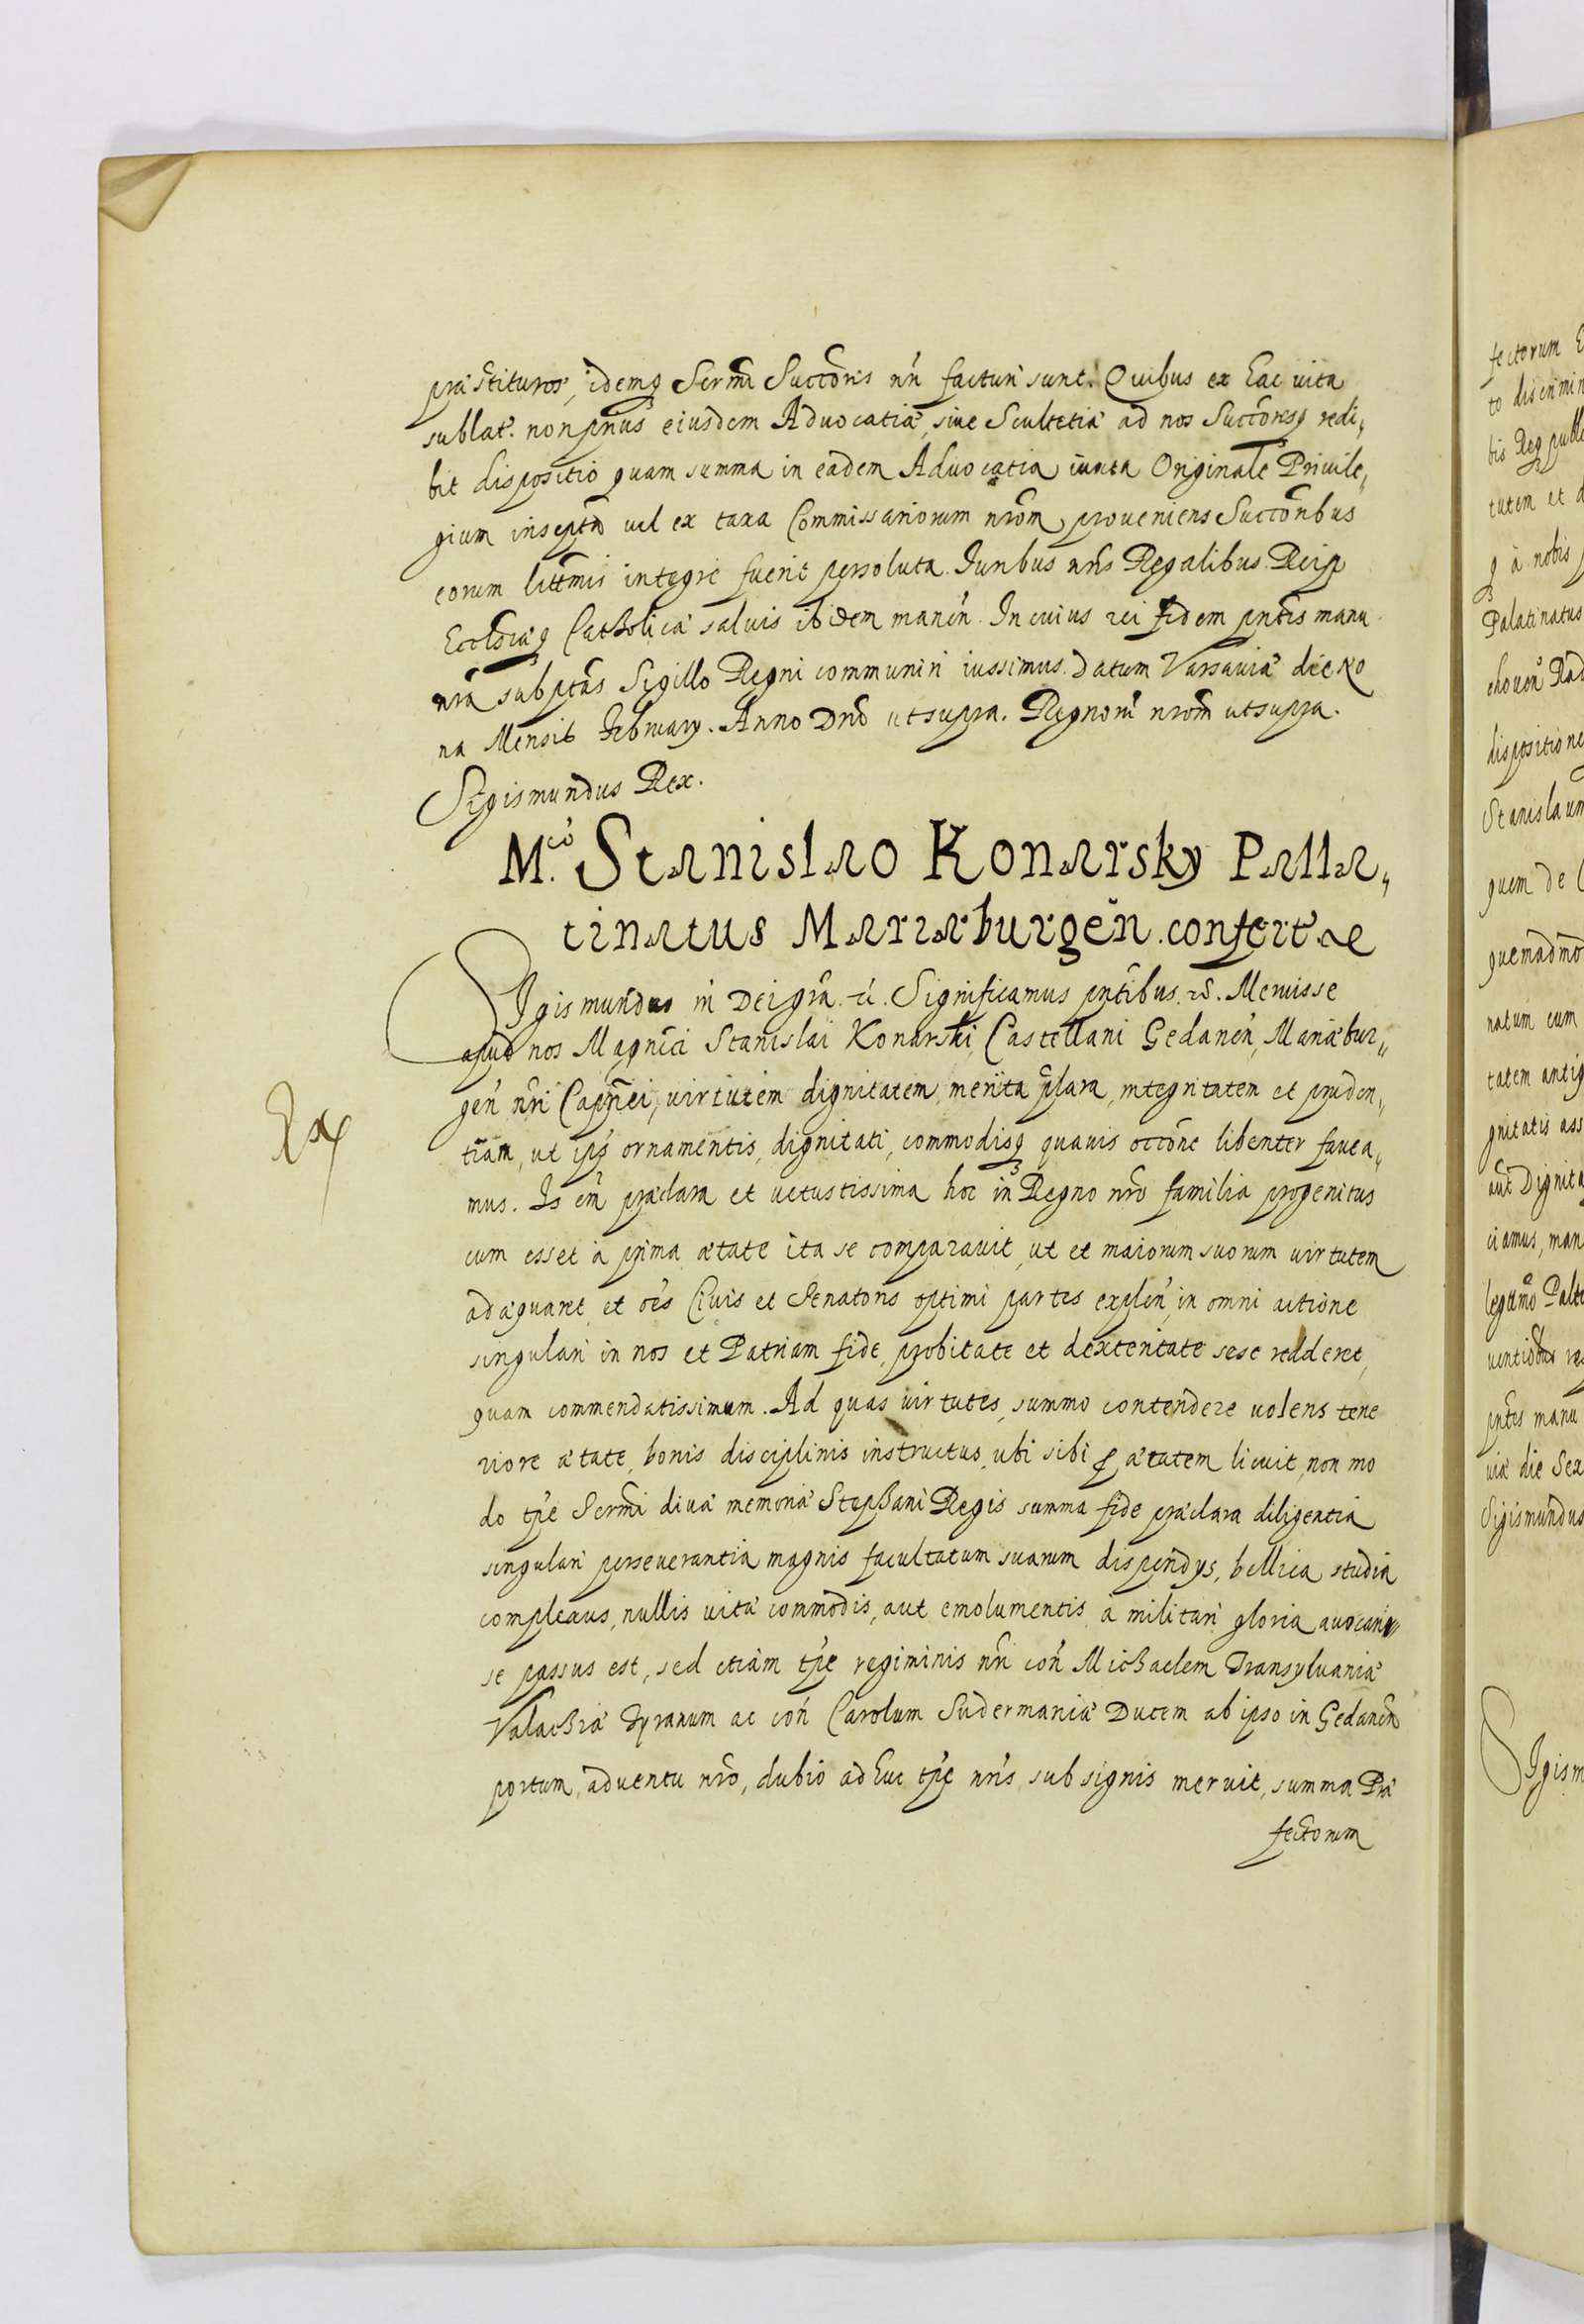 præstituros, idemq Sermi Succoris nri facturi sunt. Quibus ex hac vita
sublat. non prius eiusdem Advocatiæ, siue Scultetiæ ad nos Succoresq redi,
bit dispositio quam summa in eadem Aduocatia iuxta Originale Priuile,
gium inscpta uel ex taxa Commissariorum nrom proueniens Succoribus
eorum littmis integre fuerit persoluta. Iuribus nris Regalibus Reip
Ecclsiæq Catholicæ saluis ibidem manen. In cuius rei fidem pntes manu
nra subptas Sigillo Regni communiri iussimus. Datum Varsauiæ die No
na Mensis February. Anno Dno ut supra. Regnorū nrom ut supra.
Sigismundus Rex.
M.co Stanislao Konarsky Palla,
tinatus Mariæburgen. confert
Sigismundus III Dei gra. Significamus pntibus. Meruisse
apud nos Magnci Stanislai Konarski, Castellani Gedanen, Mariæbur,
gen nri Capnei, virtutem dignitatem, merita plara, integritatem et pruden,
tiam, ut ips ornamentis, dignitati, commodisq quauis occone libenter fauea,
mus. Is em præclara et uetustissima hoc in Regno nro familia progenitus
cum esset à prima ætate ita se comparauit, ut et maiorum suorum uirtutem
adæquaret, et oes Ciuis et Senatoris optimi partes explen, in omni actione
singulari in nos et Patriam fide, probitate et dexteritate sese redderet,
quam commendatissimum. Ad quas uirtutes, summo contendere uolens tene
riore ætate, bonis disciplinis instructus, ubi sibi p ætatem licuit, non mo
do tpe Sermi diuæ memoriæ Stephani Regis summa fide præclara diligentia
singulari perseuerantia magnis facultatum suarum dispendys, bellica studia
complexus, nullis uitæ commodis, aut emolumentis à militari gloria auocari
se passus est, sed etiam tpe regiminis nri con Michaelem Transyluaniæ
Valachiæ Tyranum ac con Carolum Sudermaniæ Ducem ab ipso in Gedanen
portum, aduentu nro, dubio adhuc tpe nris sub signis meruit, summa Præ
fectorum
fectorum
to discrimin
tutem et d
q à nobis
Palatinatus
dispositione
Stanislaum
quem de
quemadmo
natum cum
tatem antiq
gnitatis ass
aut Dignita
ciamus, man
legittmo
pntes manu
uiæ die Sex
Sigismundus
Sigism